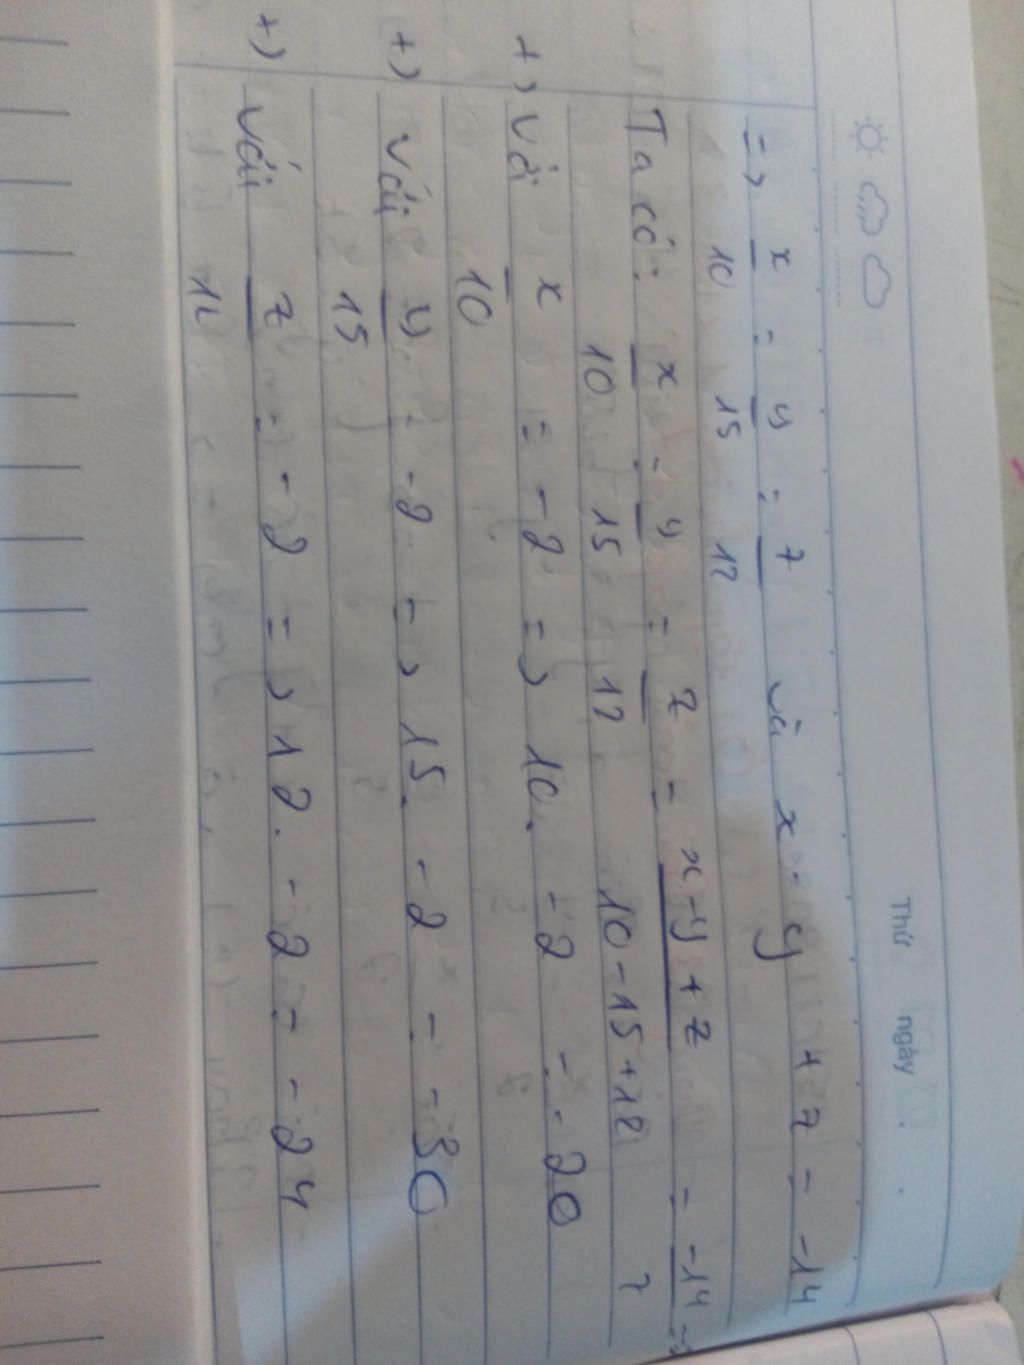 Thứ ngày
=> x/10 = y/15 = z/12 và x - y + z = -14
Ta có: x/10 = y/15 = z/12 = (x-y+z)/(10-15+12) = -14/7 =
+) Với x/10 = -2 => 10. -2 = -20
+) Với y/15 = -2 => 15. -2 = -30
+) Với z/12 = -2 => 12. -2 = -24